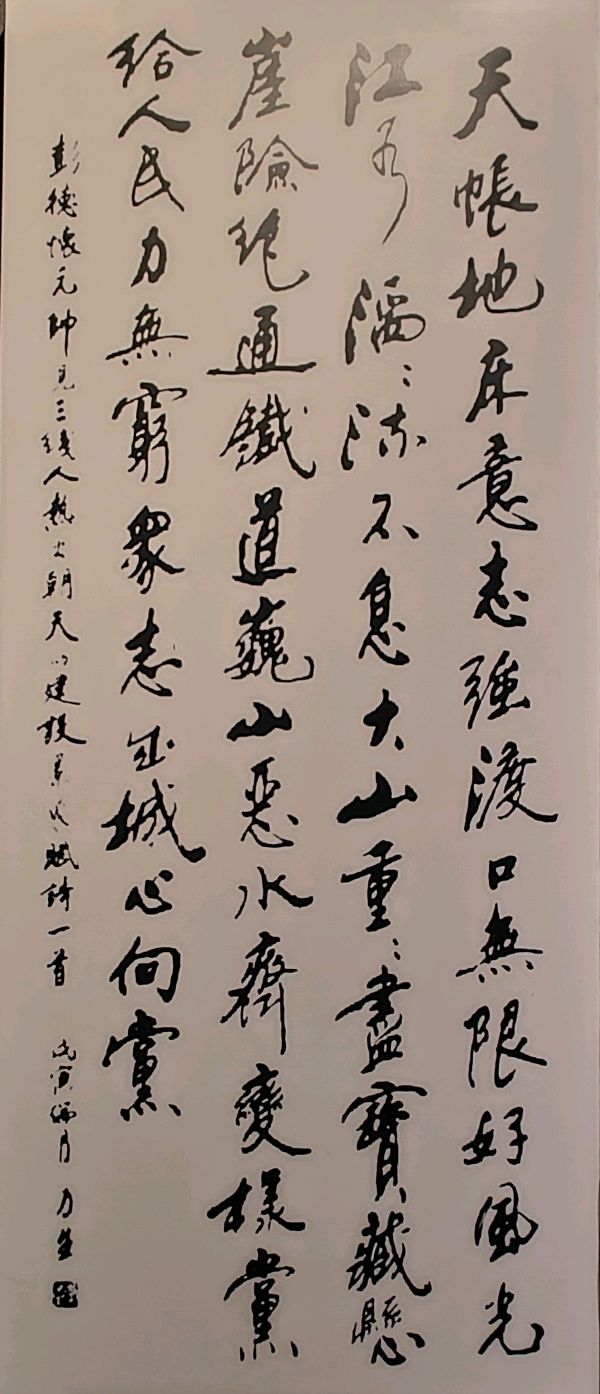 天帳地床意志強渡口無限好風光
江水滔〻流不息大山重〻盡寶藏懸
崖險絕通鐵道巍山惡水齊變樣黨
給人民力無窮眾志成城心向黨
彭德懷元帥見三綫人熱火朝天的建設景象賦詩一首 戊寅端月 力生